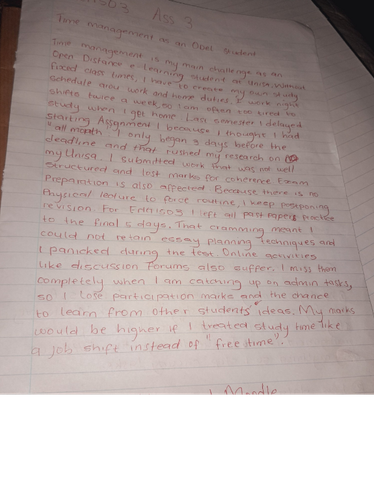 1503 Ass 3
Time management as an ODeL student
Time management is my main challenge as an
Open Distance e-learning student at Unisa. Without
fixed class times, I have to create my own study
schedule around work and home duties. I work night
shifts twice a week, so I am often too tired to
study when I get home. Last semester I delayed
starting Assignment 1 because I thought I had
"all month". I only began 3 days before the
deadline and that rushed my research on
myUnisa. I submitted work that was not well
structured and lost marks for coherence Exam
Preparation is also affected Because there is no
Physical lecture to force routine, I keep postponing
revision. For 1503 I left all past papers practice
to the final 5 days. That cramming meant I
could not retain essay planning techniques and
I panicked during the test. Online activities
like discussion forums also suffer. I miss them
completely when I am catching up on admin tasks,
so I lose participation marks and the chance
to learn from other students' ideas. My marks
would be higher if I treated study time like
a job shift instead of "free time".
Moodle